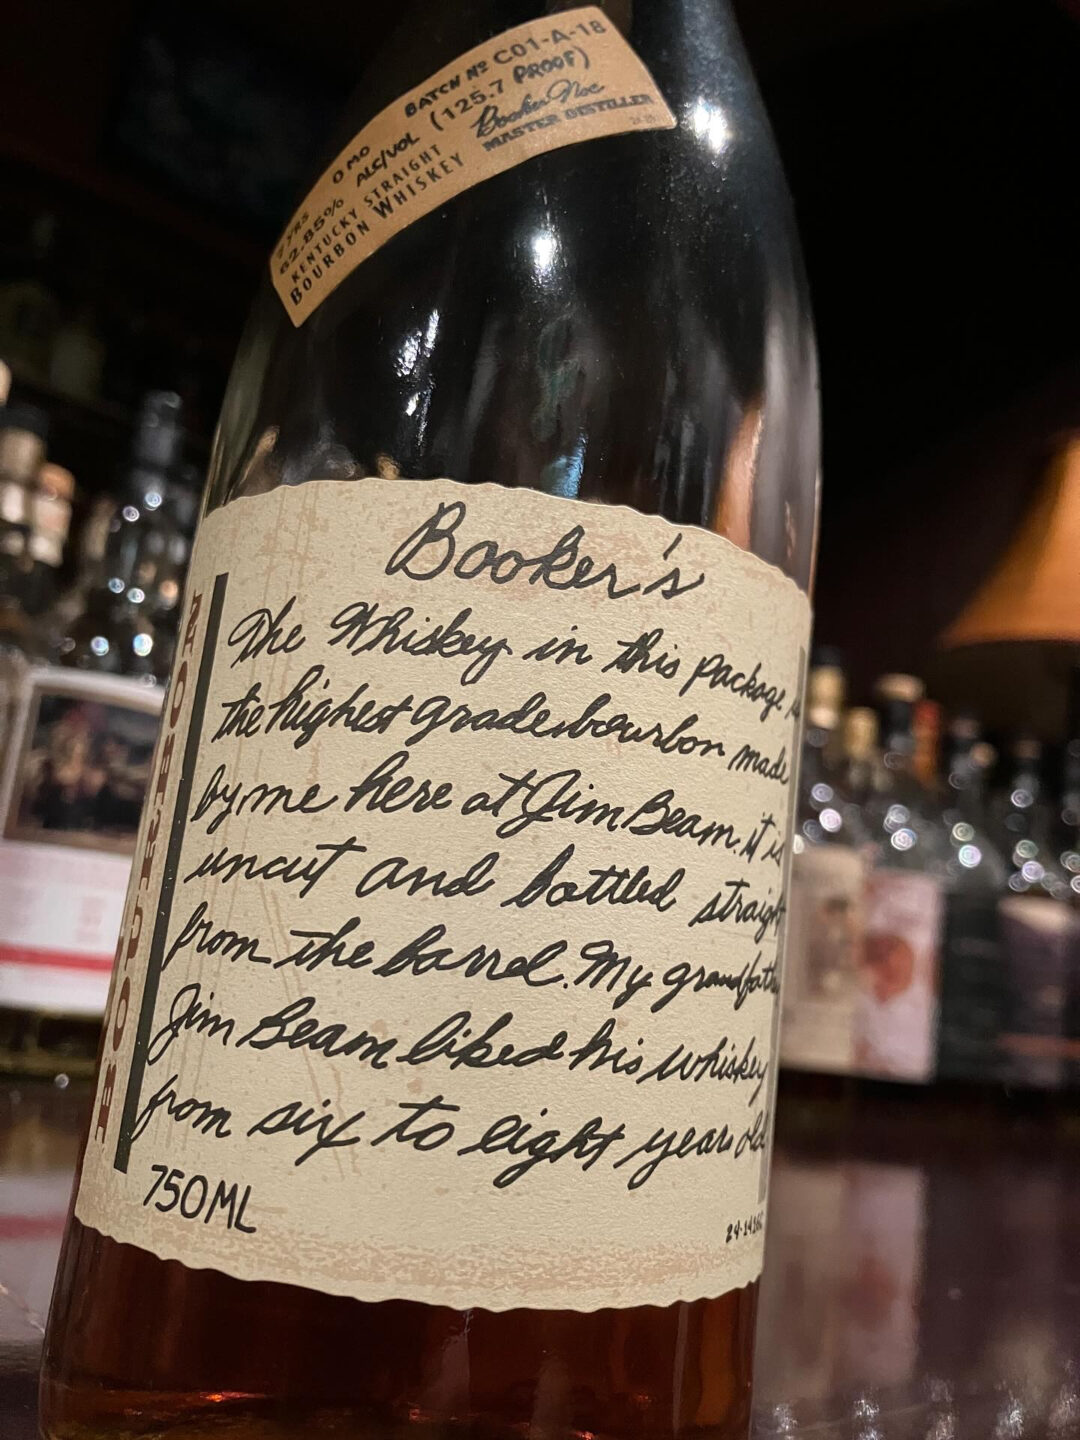 BATCH Nº C01-A-18
YRS 0 MO
62.85% ALC/VOL (125.7 PROOF)
KENTUCKY STRAIGHT
BOURBON WHISKEY
Booker Noe
MASTER DISTILLER
Booker's
The Whiskey in this package is
the highest grade bourbon made
by me here at Jim Beam. it is
uncut and bottled straight
from the barrel. My grandfath
Jim Beam liked his whiskey
from six to eight years old
750ML